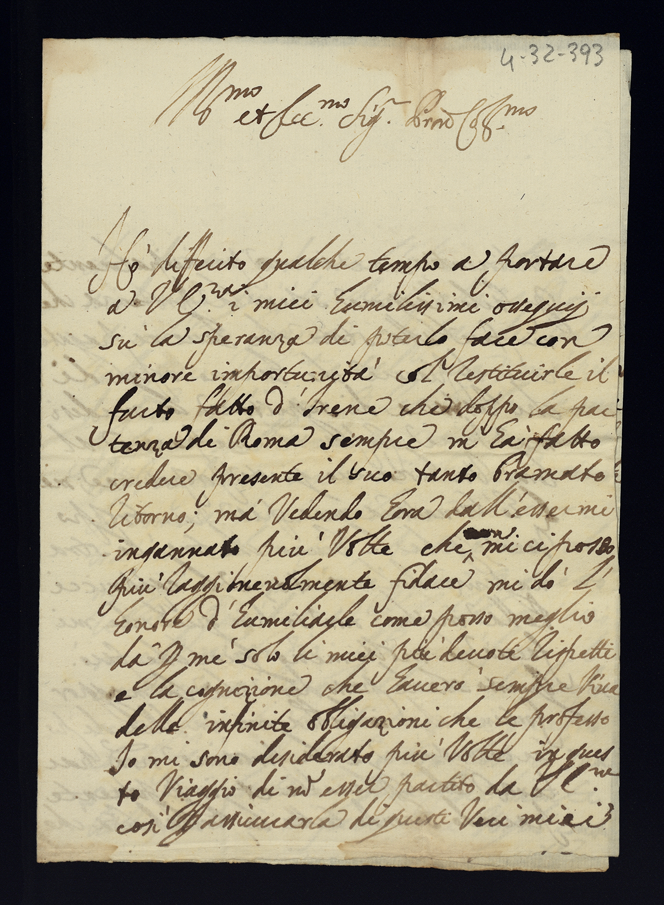 4-32-393
Ill.mo et Ecc.mo Sig.r Pron Col.mo
Hò differito qualche tempo a portare
a V E.za i miei humilissimi ossequij
sù la speranza di poterlo fare con
minore importunità col restituirle il
furto fatto d'Irene che doppo la par-
tenza di Roma sempre m'hà fatto
credere presente il suo tanto bramato
ritorno; mà vedendo hora dall'essermi
ingannato più volte che non mi ci posso
più raggionevolmente fidare mi dò l'
honore d'humiliarle come posso meglio
da p me solo li miei più devoti rispetti
e la cognizione che haverò sempre viva
delle infinite obligazioni che le professo
Io mi sono desiderato più volte in ques
to viaggio di nõ esser partito da
così p assicurarla di questi veri miei